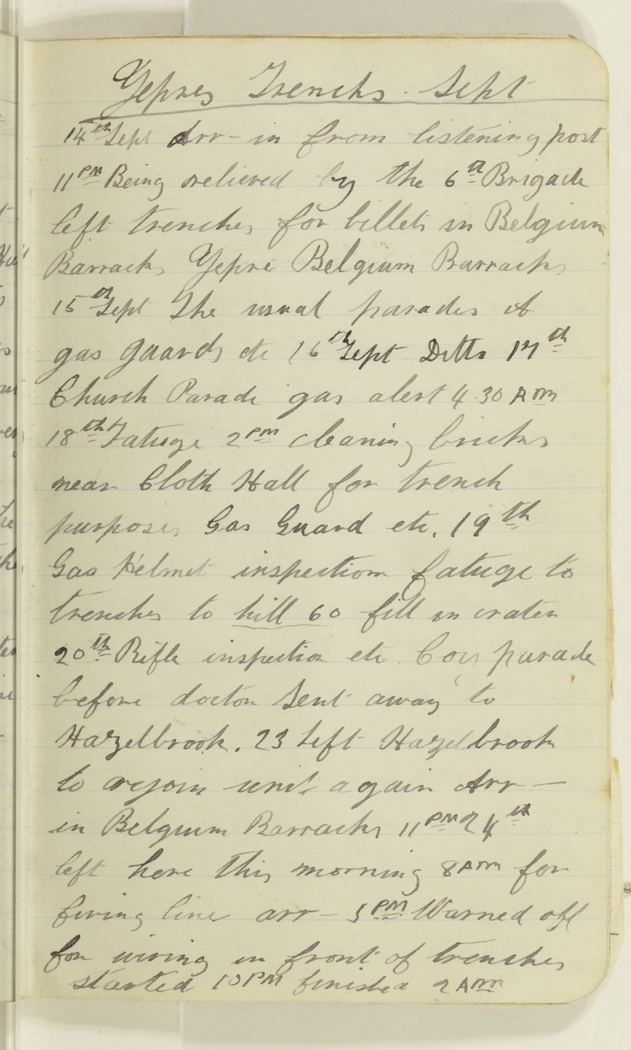 Yepres Trenchs. Sept
14th Sept Arr - in from listening post
11 PM Being relieved by the 6th Brigade
left trenches for billets in Belgium
Barracks Yepre Belgium Barracks
15th Sept The usual parades &
gas guards etc 16th Sept Ditto 17th
Church Parade gas alert 4.30 AM
18th Fatuge 2 PM cleaning bricks
near Cloth Hall for trench
purposes Gas Guard etc. 19th
Gas Helmet inspection fatuge to
trenches to hill 60 fill in crater
20th Rifle inspection etc Coy parade
before doctor sent away to
Hazelbrook. 23 left Hazelbrook
to rejoin unit again Arr -
in Belgium Barracks 11 PM 24th
left here this morning 8 AM for
firing line arr - 5 PM Warned off
for wiring in front of trenches
started 10 PM finished 2 AM